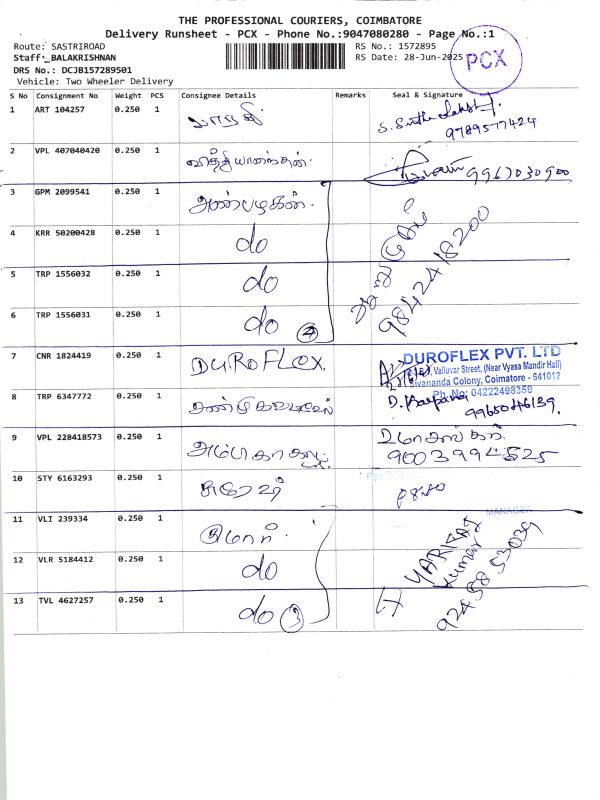 THE PROFESSIONAL COURIERS, COIMBATORE
Delivery Runsheet - PCX - Phone No.:9047080280 - Page No.:1
Route: SASTRIROAD
RS No.: 1572895
Staff: BALAKRISHNAN
RS Date: 28-Jun-2025
PCX
DRS No.: DCJB157289501
Vehicle: Two Wheeler Delivery
S No Consignment No Weight PCS Consignee Details Remarks Seal & Signature
1 ART 104257 0.250 1 பாரதி
9789577424
2 VPL 407040420 0.250 1 9963030900
3 GPM 2099541 0.250 1 அன்பழகன்.
4 KRR 50200428 0.250 1 do
5 TRP 1556032 0.250 1 do
6 TRP 1556031 0.250 1 do 4
9842418200
7 CNR 1824419 0.250 1 DUROFLEX
DUROFLEX PVT. LTD
Valluvar Street, (Near Vyasa Mandir Hall)
Sivananda Colony, Coimatore - 641012
Ph. No: 04222498359
8 TRP 6347772 0.250 1 9965046139.
9 VPL 228418573 0.250 1
9003994525
10 STY 6163293 0.250 1
11 VLI 239334 0.250 1
MANAGER
12 VLR 5184412 0.250 1 do
13 TVL 4627257 0.250 1 do 3
HARIRAJ
Kumar
9245853039